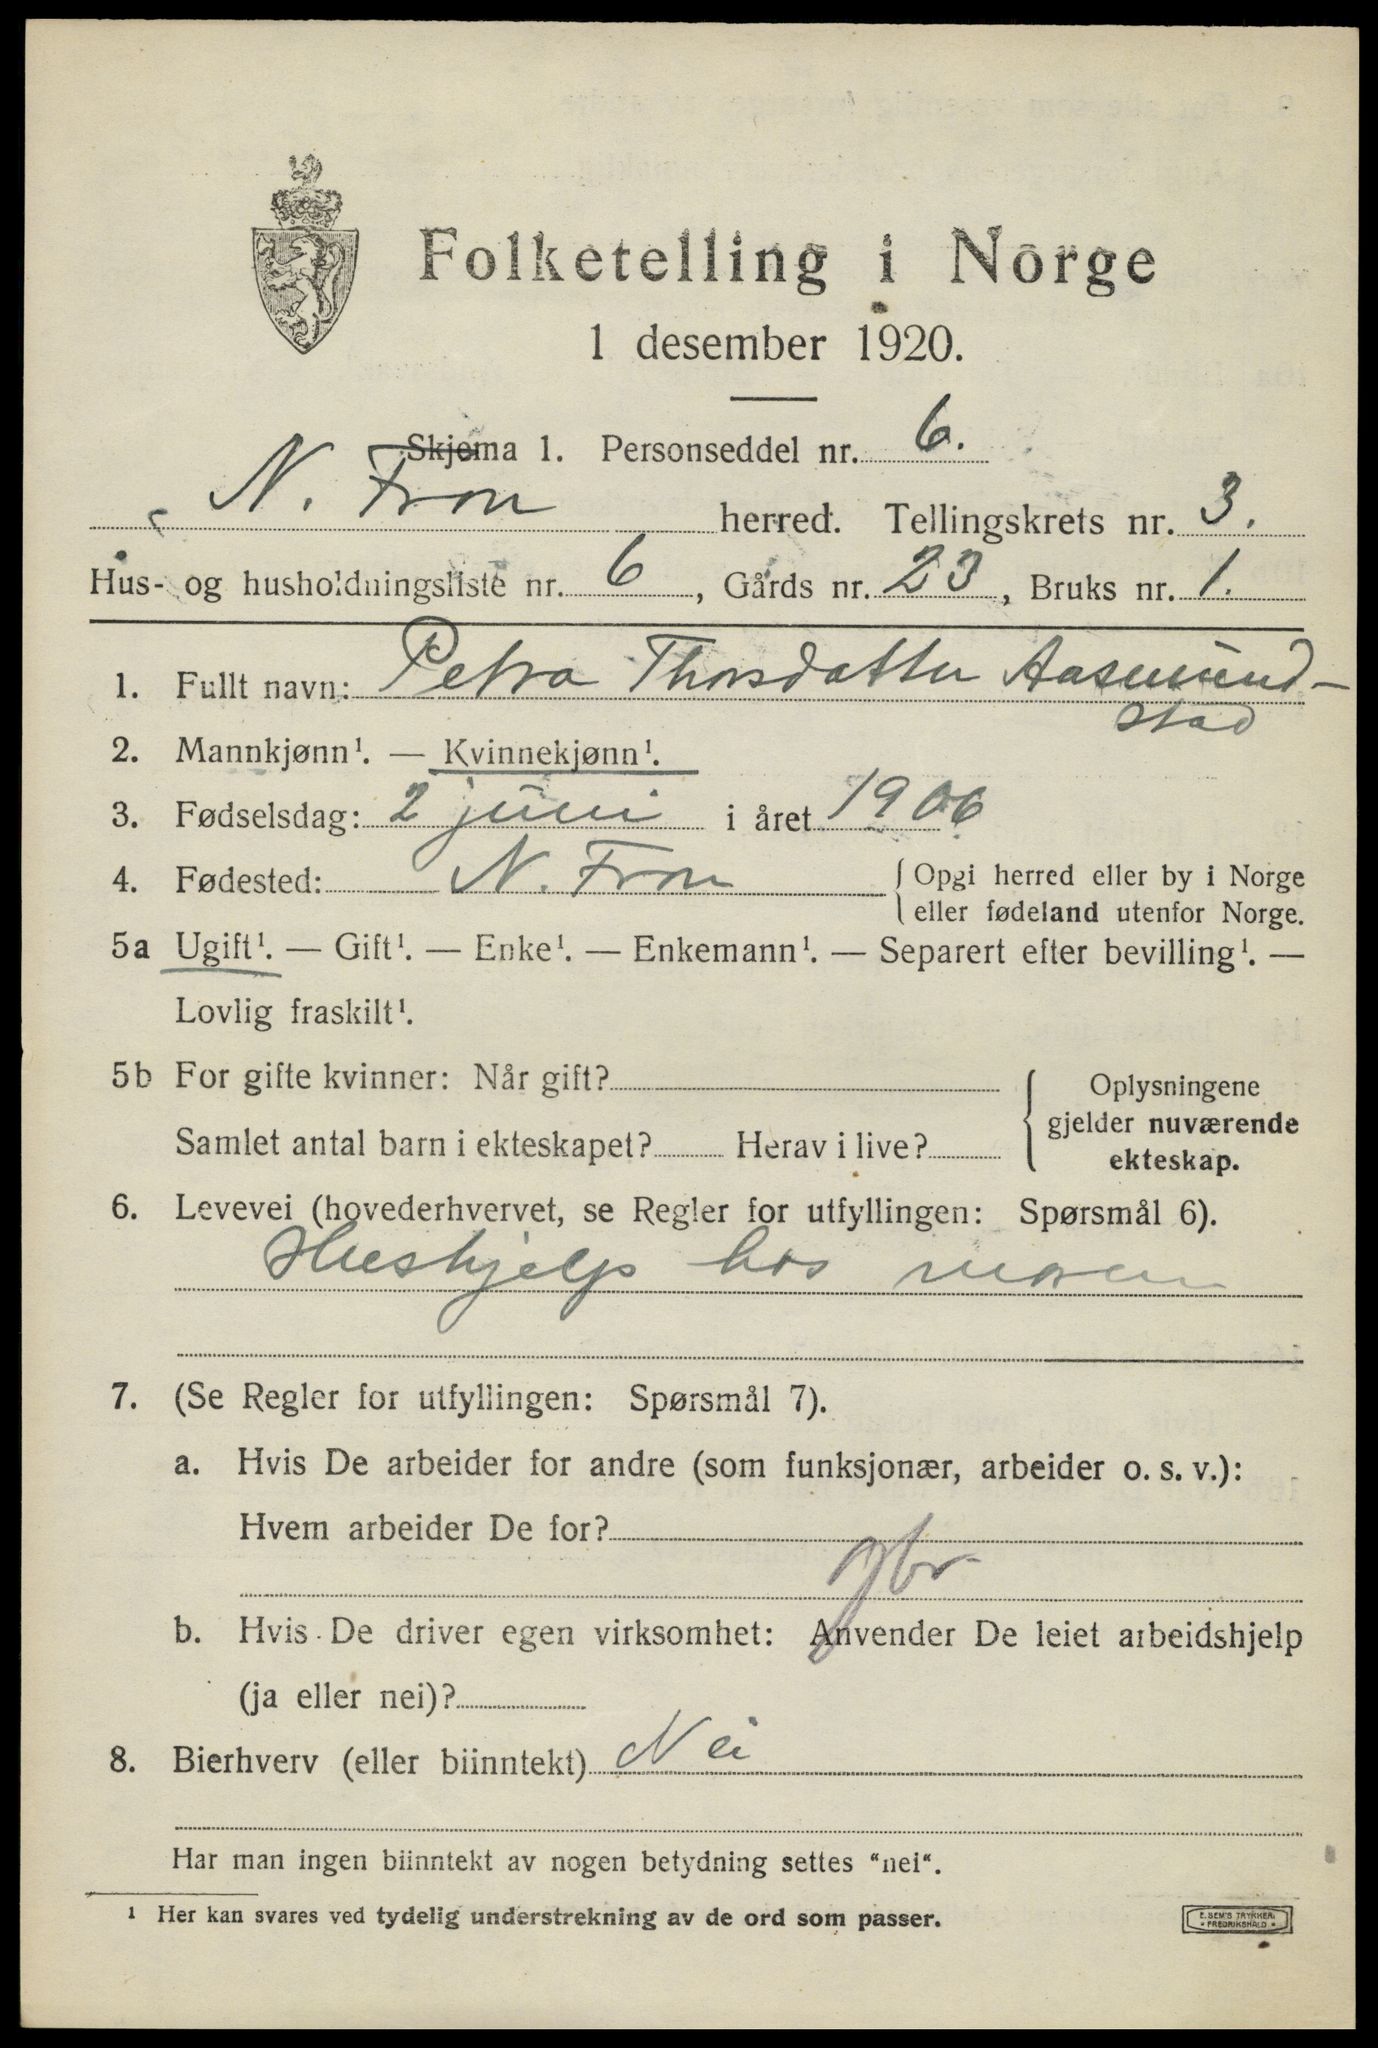 Folketelling i Norge
1 desember 1920.
Skjema 1. Personseddel nr. 6.
N. Fron herred. Tellingskrets nr. 3.
Hus- og husholdningsliste nr. 6, Gårds nr. 23, Bruks nr. 1.
1. Fullt navn: Petra Thorsdatter Aasmund-
stad
2. Mannkjønn¹. — Kvinnekjønn¹.
3. Fødselsdag: 2 juni i året 1906
4. Fødested: N. Fron { Opgi herred eller by i Norge
eller fødeland utenfor Norge.
5a Ugift¹. — Gift¹. — Enke¹. — Enkemann¹. — Separert efter bevilling¹. —
Lovlig fraskilt¹.
5b For gifte kvinner: Når gift? { Oplysningene
gjelder nuværende
Samlet antal barn i ekteskapet? Herav i live?
ekteskap.
6. Levevei (hovederhvervet, se Regler for utfyllingen: Spørsmål 6).
Hushjelp hos moren
7. (Se Regler for utfyllingen: Spørsmål 7).
a. Hvis De arbeider for andre (som funksjonær, arbeider o. s. v.):
Hvem arbeider De for?
gbr
b. Hvis De driver egen virksomhet: Anvender De leiet arbeidshjelp
(ja eller nei)?
8. Bierhverv (eller biinntekt) Nei
Har man ingen biinntekt av nogen betydning settes “nei“.
¹ Her kan svares ved tydelig understrekning av de ord som passer.
E. SEM'S TRYKKERI
• FREDRIKSHALD •